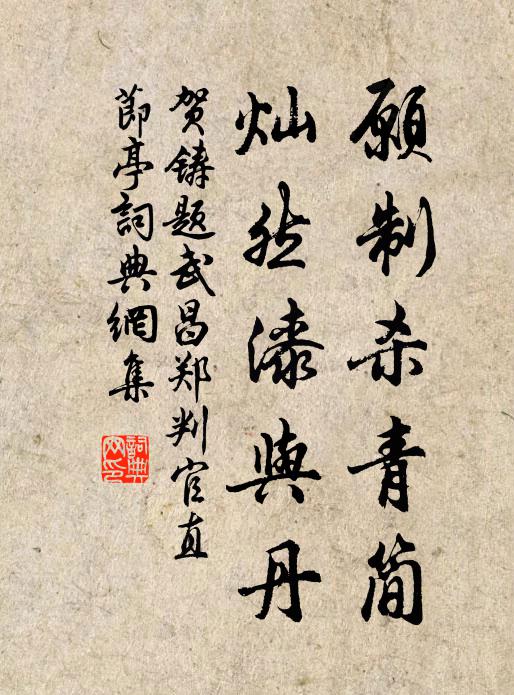 願制杀青简
灿然漆與丹
贺铸题武昌郑判官直
節亭詞典網集
詞典
网印